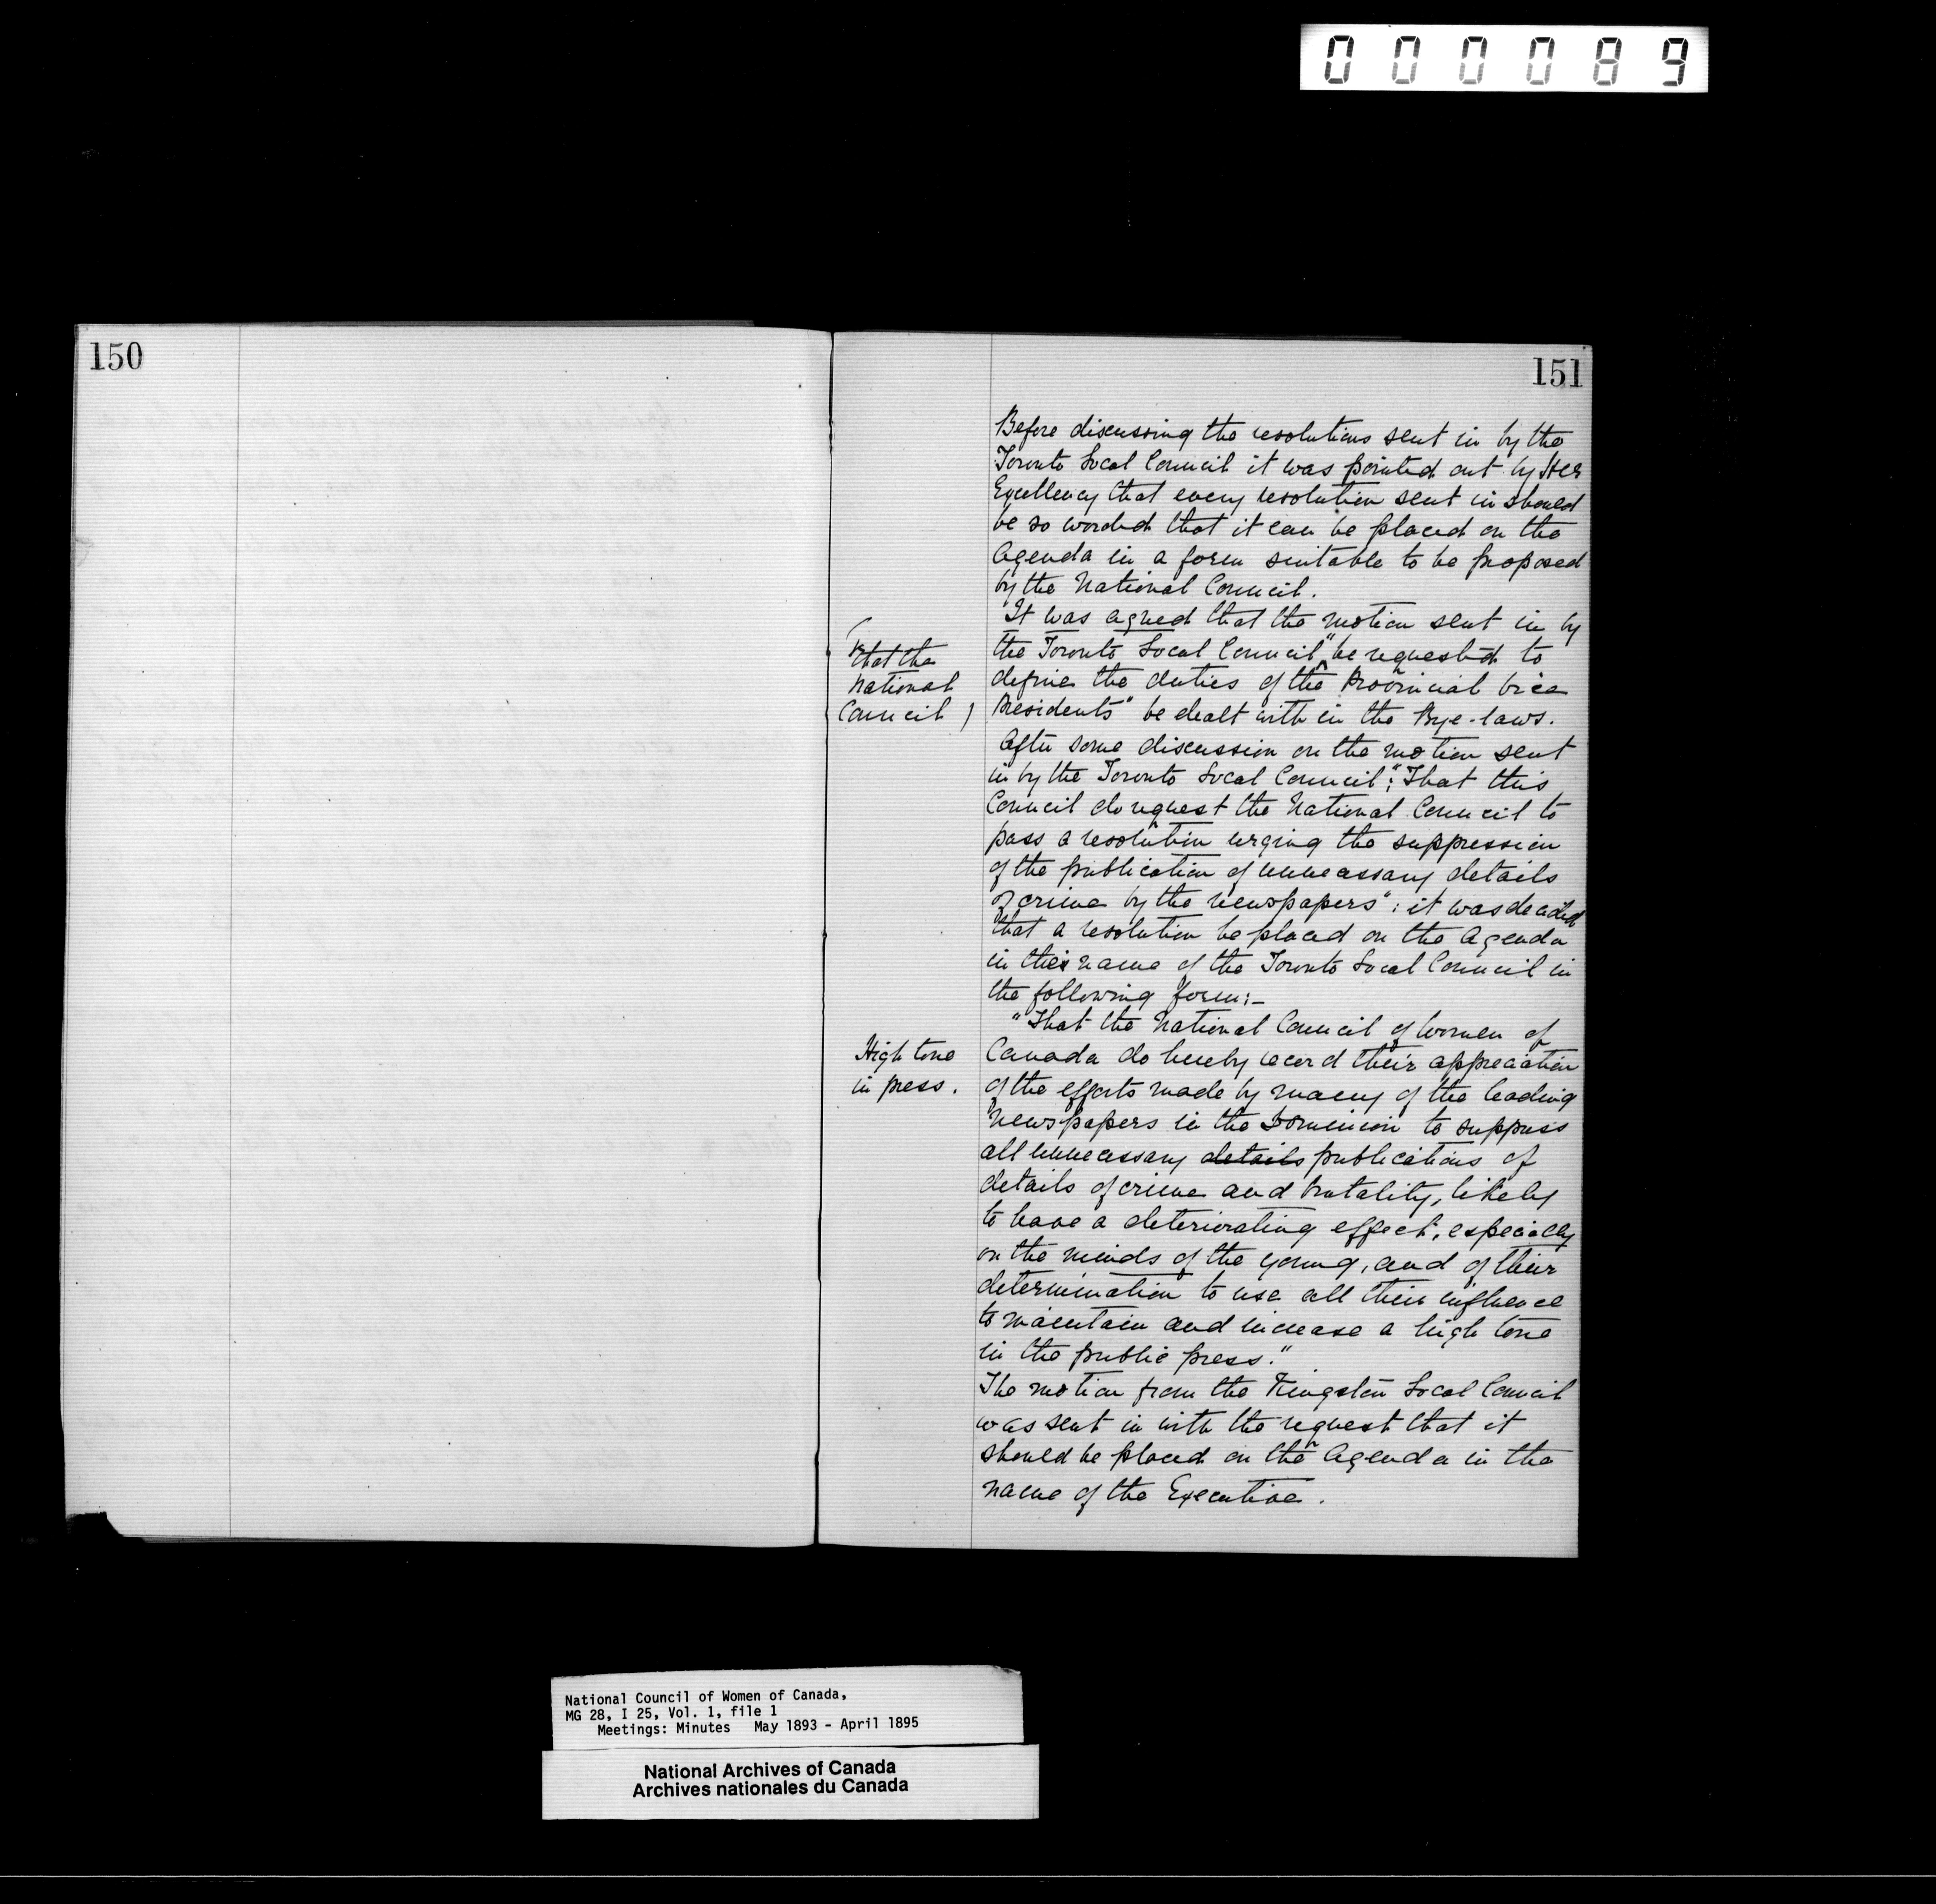 000089
150
151
Before discussing the resolutions sent in by the
Toronto Local Council it was pointed out by Her
Excellency that every resolution sent in should
be so worded that it can be placed on the
Agenda in a form suitable to be proposed
by the National Council.
It was agreed that the motion sent in by
the Toronto Local Council "be requested to
define the duties of the Provincial Vice
Presidents" be dealt with in the Bye-laws.
(that the
National
Council)
After some discussion on the motion sent
in by the Toronto Local Council; "That this
Council do request the National Council to
pass a resolution urging the suppression
of the publication of unnecessary details
of crime by the newspapers"; it was decided
that a resolution be placed on the Agenda
in the name of the Toronto Local Council in
the following form:-
"That the National Council of Women of
High tone
in press.
Canada do hereby record their appreciation
of the efforts made by many of the leading
newspapers in the Dominion to suppress
all unnecessary details publications of
details of crime and brutality, likely
to have a deteriorating effect, especially
on the minds of the young, and of their
determination to use all their influence
to maintain and increase a high tone
in the public press."
The motion from the Kingston Local Council
was sent in with the request that it
should be placed on the Agenda in the
name of the Executive.
National Council of Women of Canada,
MG 28, I 25, Vol. 1, file 1
Meetings: Minutes May 1893 - April 1895
National Archives of Canada
Archives nationales du Canada